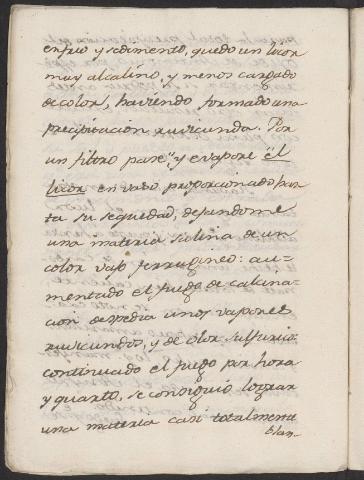 enfrio y sedimento, quedo un licor
muy alcalino, y menos cargado
de color, haviendo formado una
precipitacion rruvicunda. Por
un filtro pase, y evapore el
licor en vaso proporcionado has
ta su sequedad, dejandome
una materia salina de un
color vajo ferrugineo: au-
mentado el fuego de calcina-
cion despedia unos vapores
rruvicundos, y de olor sulfurio:
continuado el fuego por hora
y quarto, se consiguió lograr
una materia casi totalmente
blan-